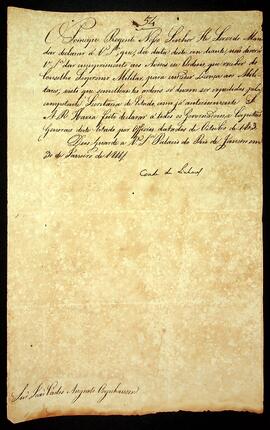 54
O Principe Regente Nosso Senhor He Servido Man
dar declarar a V. Sa. que, da data desta em diante, não deverá
V. Sa. dar cumprimento aos Avisos ou Ordens que receber do
Conselho Supremo Militar, para conceder Licença aos Mili
tares, visto que semelhantes ordens só devem ser expedidas pela
competente Secretaria de Estado como já anteriormente S.
A. R. Havia feito declarar a todos os Governadores, e Capitães
Generaes deste Estado por Officios datados de Outubro de
Deos Guarde a V. Sa. Palacio do Rio de Janeiro em
30 de Janeiro de
Conde de
Snr. João Carlos Augusto Oeynhausen